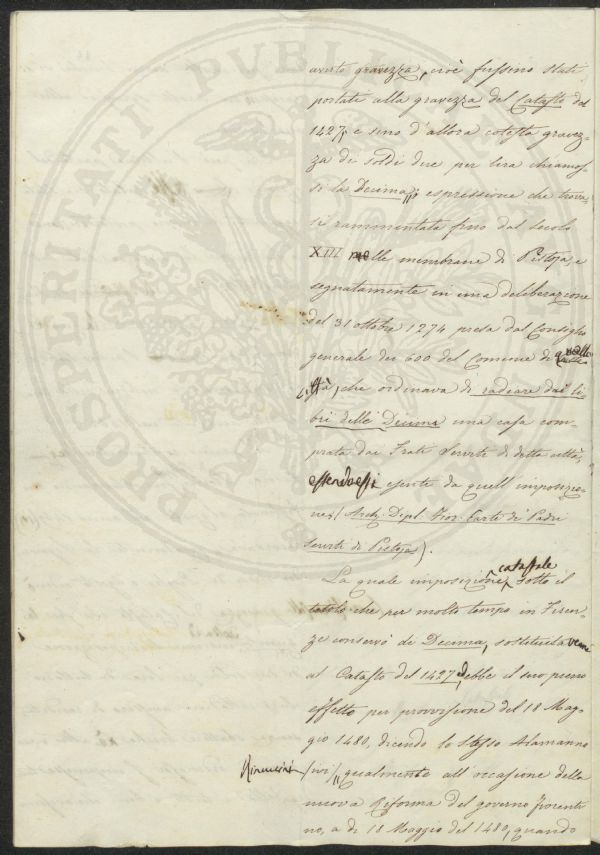 PROSPERITATI PUBLICAE
averto gravezza, cioè fussino stati
portate alla gravezza del Catasto del
1427, e sino d'allora cotesta gravez-
za di soldi due per lira chiamos-
si la Decima; espressione che trova
si rammentata fino dal secolo
XIII nelle membrane di Pistoja, e
segnatamente in una deliberazione
del 31 ottobre 1274 presa dal Consiglio
generale dei 600 del Comune di quella
città, che ordinava di radiare dai li-
bri delle Decime una casa com-
prata dai Frati Serviti di detta città,
essendo essi esenti da quell'imposizio-
ne (Arch. Dipl. Fior. Carte di Padri
Serviti di Pistoja).
La quale imposizione catastale sotto il
titolo che per molto tempo in Firen-
ze conservò di Decima, sostituita venne
al Catasto del 1427, ebbe il suo pieno
effetto per provvisione del 18 Mag-
gio 1480, dicendo lo stesso Alamanno
Rinuccini (ivi), qualmente all'occasione della
nuova Riforma del governo fiorenti
no, a dì 18 Maggio del 1480, quando